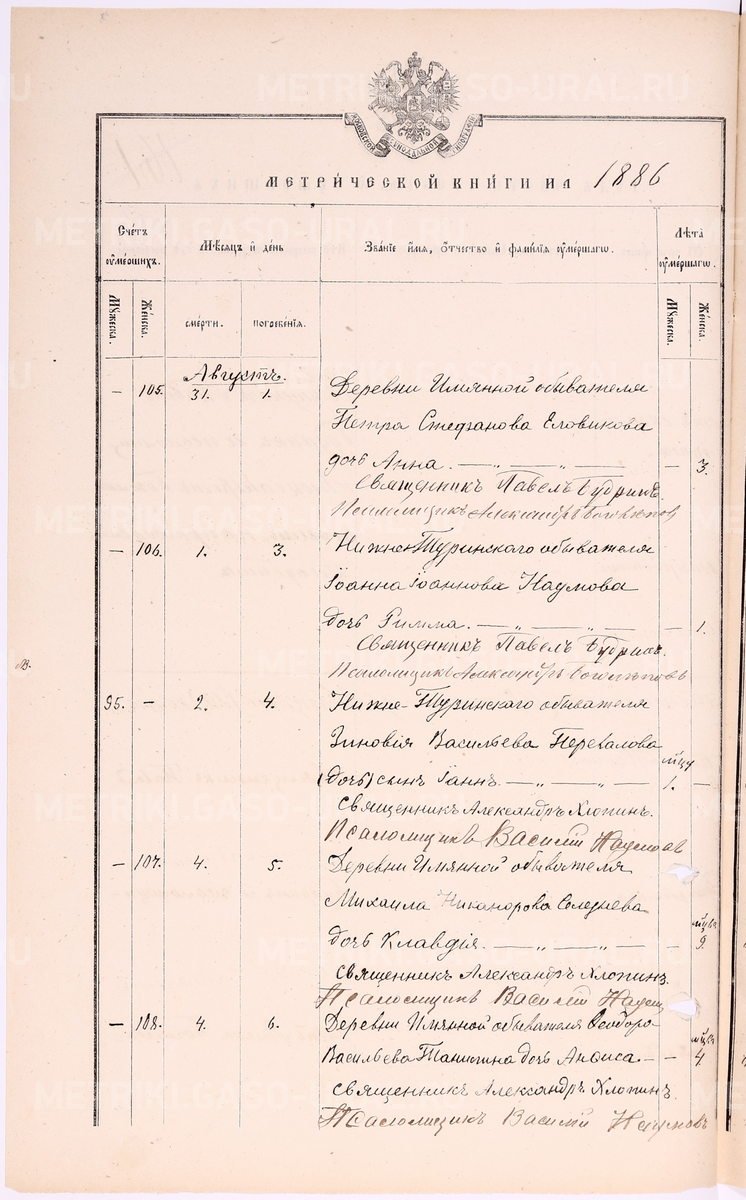 МЕТРИ́ЧЕСКОЙ КНИ́ГИ НА 1886
Сче́тъ ᲂу҆ме́ршихъ.
Мѣ́сяцъ и҆ де́нь
Зва́нїе и҆́мѧ, ѻ҆́тчество и҆ фами́лїѧ ᲂу҆ме́ршагѡ.
Лѣ́та ᲂу҆ме́ршагѡ.
Мꙋ́жеска.
Же́нска.
сме́рти.
погребе́нїѧ.
Мꙋ́жеска.
Же́нска.
Августъ.
— 105. 31. 1. Деревни Имянной обывателя
Петра Стефанова Еловикова
дочь Анна. — „ — „ — — 3.
Священникъ Павелъ Будринъ.
Псаломщикъ Александръ
— 106. 1. 3. Нижне-Туринскаго обывателя
Іоанна Іоаннова Наумова
дочь Римма. — „ — „ — — 1.
Священникъ Павелъ Будринъ.
Псаломщикъ Александръ
95. — 2. 4. Нижне-Туринскаго обывателя
Зиновія Васильева Перевалова
мѣцъ
(дочь) сынъ Іаннъ. — „ — „ — 1. —
Священникъ Александръ Хлопинъ.
Псаломщикъ Василій Наумовъ
— 107. 4. 5. Деревни Имянной обывателя
Михаила Никанорова
мѣцевъ
дочь Клавдія. — „ — „ — — 9.
Священникъ Александръ Хлопинъ.
Псаломщикъ Василій Наум
— 108. 4. 6. Деревни Имянной обывателя Ѳеодора
мѣцевъ
Васильева дочь Анѳиса — — 4.
Священникъ Александръ Хлопинъ.
Псаломщикъ Василій Наумовъ
METRIKI.GASO-URAL.RU